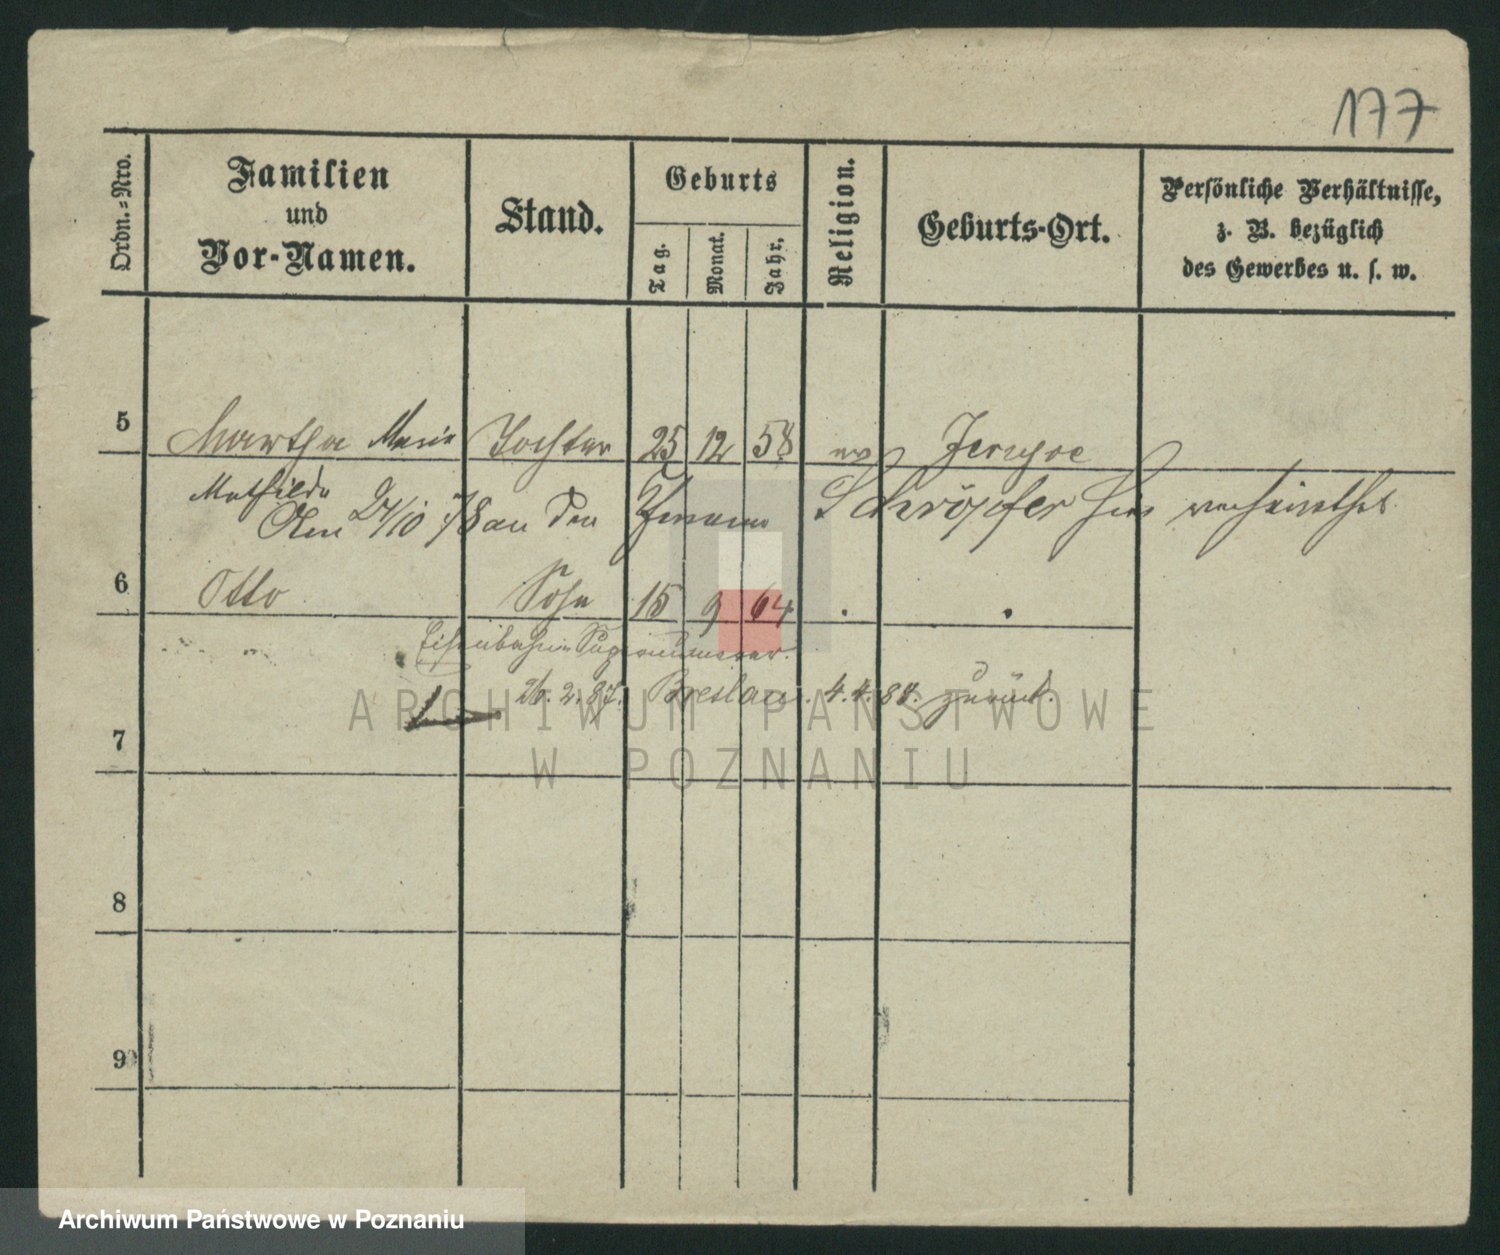 177
Ordn.-Nro.
Familien
und
Vor-Namen.
Stand.
Geburts
Tag.
Monat.
Jahr.
Religion.
Geburts-Ort.
Persönliche Verhältnisse,
z. B. bezüglich
des Gewerbes u. s. w.
5 Martha Marie Tochter 25 12 58 ev
Mathilde
Am 24/10 78 an den Schröpfer hier verheirathet
6 Otto Sohn 15 9 64 . .
Eisenbahn Supernumerar.
26. 2. 87. Breslau. 4. 4. 88. zurück.
7
8
9
ARCHIWUM PAŃSTWOWE
W POZNANIU
Archiwum Państwowe w Poznaniu